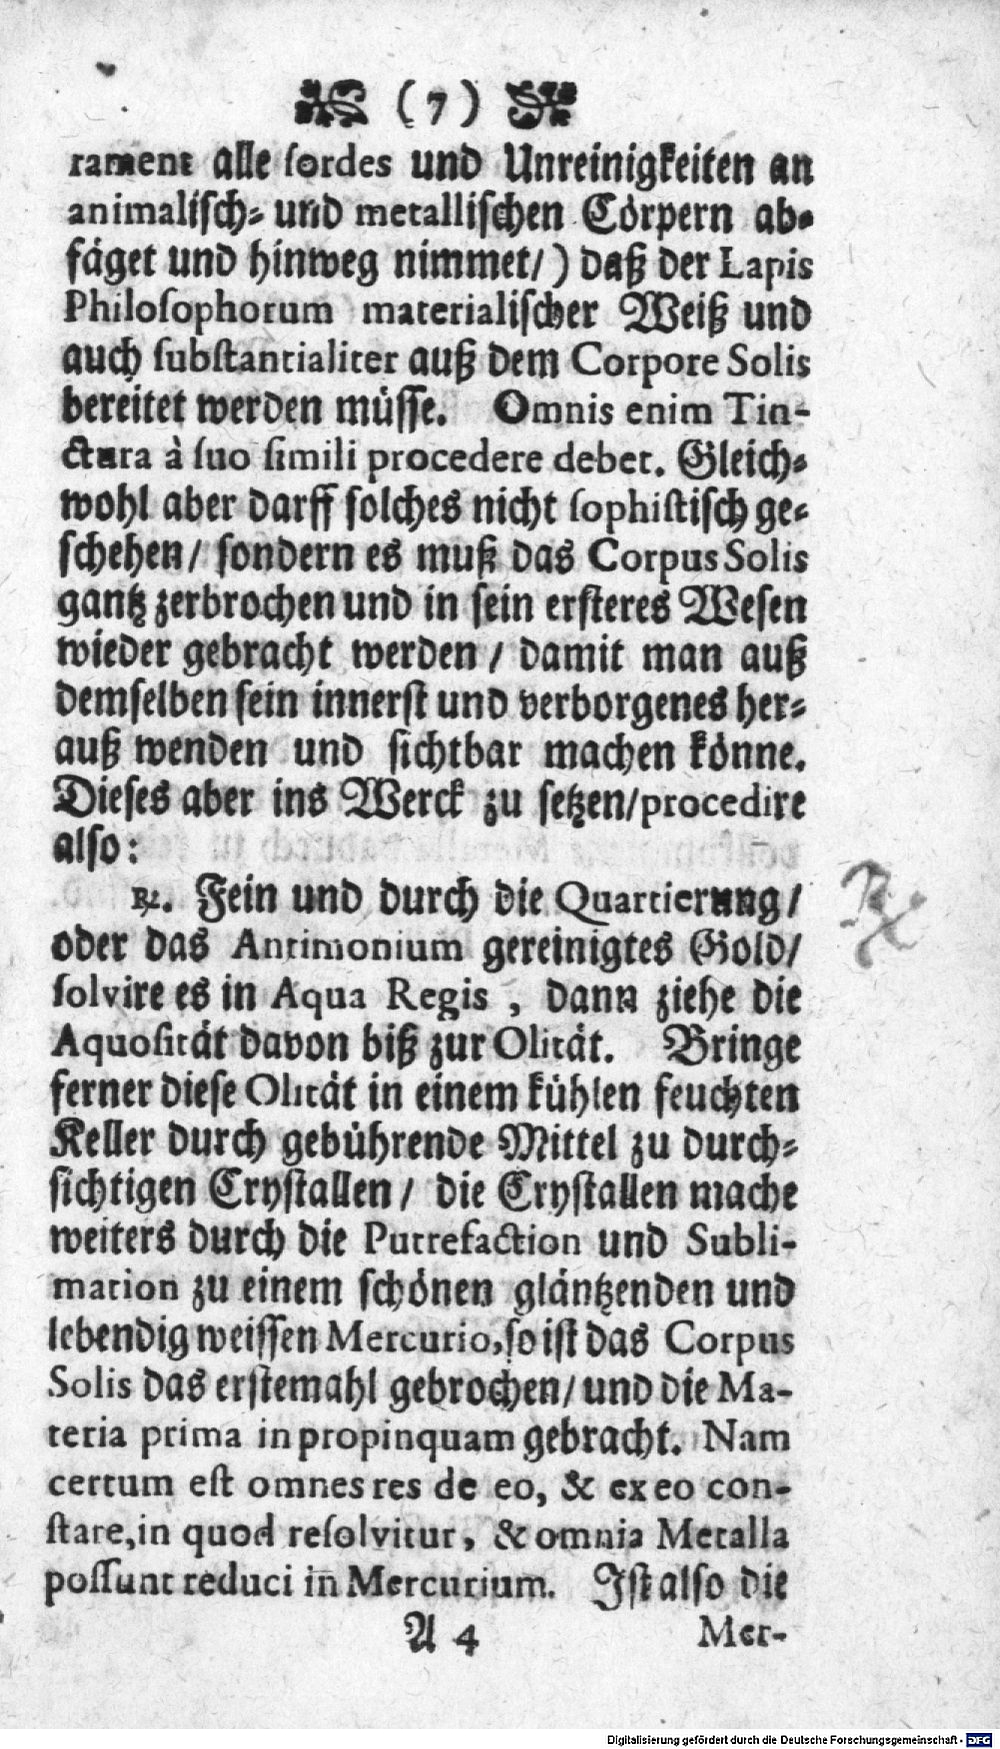 ( 7 )
rament alle ſordes und Unreinigkeiten an
animaliſch⸗ und metalliſchen Cörpern ab⸗
fäget und hinweg nimmet/) daß der Lapis
Philoſophorum materialiſcher Weiß und
auch ſubstantialiter auß dem Corpore Solis
bereitet werden müſſe. Omnis enim Tin-
ctura à ſuo ſimili procedere debet. Gleich⸗
wohl aber darff ſolches nicht ſophiſtiſch ge⸗
ſchehen/ ſondern es muß das Corpus Solis
gantz zerbrochen und in ſein erſteres Weſen
wieder gebracht werden / damit man auß
demſelben ſein innerſt und verborgenes her⸗
auß wenden und ſichtbar machen könne.
Dieſes aber ins Werck zu ſetzen/procedire
alſo:
℞. Fein und durch die Quartierung/
oder das Antimonium gereinigtes Gold/
ſolvire es in Aqua Regis , dann ziehe die
Aquoſität davon biß zur Olität. Bringe
ferner dieſe Olität in einem kühlen feuchten
Keller durch gebührende Mittel zu durch⸗
ſichtigen Cryſtallen/ die Cryſtallen mache
weiters durch die Putrefaction und Subli-
mation zu einem ſchönen gläntzenden und
lebendig weiſſen Mercurio, ſo iſt das Corpus
Solis das erſtemahl gebrochen/ und die Ma-
teria prima in propinquam gebracht. Nam
certum eſt omnes res de eo, & ex eo con-
ſtare, in quod reſolvitur, & omnia Metalla
poſſunt reduci in Mercurium. Iſt alſo die
A 4 Mer-
℞
Digitalisierung gefördert durch die Deutsche Forschungsgemeinschaft - DFG